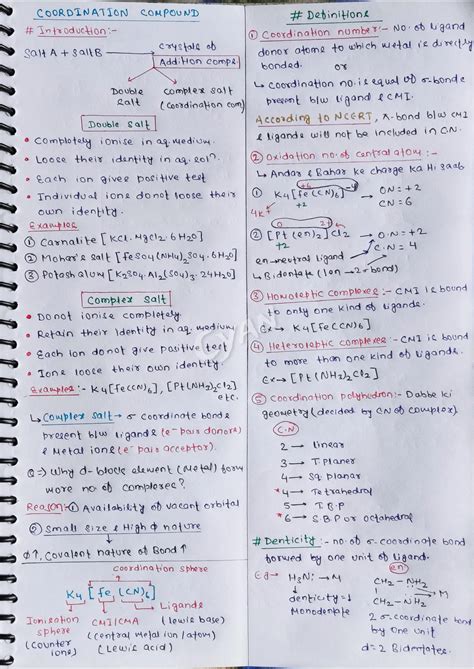 COORDINATION COMPOUND
# Introduction:-
Salt A + Salt B
crystals of
Addition comps.
Double Salt
Complex Salt
(Coordination com)
Double Salt
• Completely ionise in aq. medium.
• Loose their identity in aq. sol?.
• Each ion gives positive test
• Individual ions donot loose their
own identity.
Examples
① Carnalite [KCl. MgCl2. 6H2O]
② Mohar's salt [FeSO4(NH4)2SO4. 6H2O]
③ Potash alum [K2SO4. Al2(SO4)3. 24H2O]
Complex Salt
• Donot ionise completely.
• Retain their Identity in aq. medium
• Each Ion donot give positive test
• Ions loose their own identity.
Examples:- K4[Fe(CN)6], [Pt(NH3)2Cl2]
etc.
↳ Complex Salt → σ coordinate bonds
present b/w ligands (e⁻ pair donors)
& Metal ions (e⁻ pair acceptor).
Q ⇒ Why d-block element (Metal) form
more no. of complexes?
Reason:- ① Availability of vacant orbital
② Small size & High ϕ nature
ϕ↑, Covalent nature of Bond ↑
coordination sphere
K4 [Fe (CN)6]
Ligands
(lewis base)
Ionisation sphere
(counter ions)
CMI/CMA
(central metal ion/atom)
(Lewis acid)
# Definitions
① Coordination number:- No. of ligand
donor atoms to which metal is directly
bonded.
or
↳ coordination no. is equal of σ-bonds
present b/w ligand & CMI.
According to NCERT, π-bond b/w CMI
& ligands will not be included in CN.
② Oxidation no. of central atom:-
↳ Andar & Bahar ke charge ka Hisaab
① K4[Fe(CN)6]
+6
4K+
+2
ON = +2
CN = 6
② [Pt(en)2]Cl2
+2
ON = +2
C.N = 4
en → neutral ligand
↳ Bidentate (1en → 2σ-bond)
③ Homoleptic complexes:- CMI is bound
to only one kind of ligands.
Ex → K4[Fe(CN)6]
④ Heteroleptic complexes:- CMI is bound
to more than one kind of ligands.
Ex → [Pt(NH3)2Cl2]
⑤ Coordination polyhedron:- Dabbe ki
geometry (decided by CN of complex).
C.N
2 → linear
3 → T. Planer
4 → Sq. Planar
*4 → Tetrahedral
5 → T.B.P
*6 → S.B.P or octahedral
# Denticity:- no. of σ-coordinate bond
formed by one unit of ligand.
Eg → H3N: → M
denticity = 1
Monodentate
en
CH2 - NH2
M
CH2 - NH2
2 σ-coordinate
bond by one unit
d = 2 Bidentates.